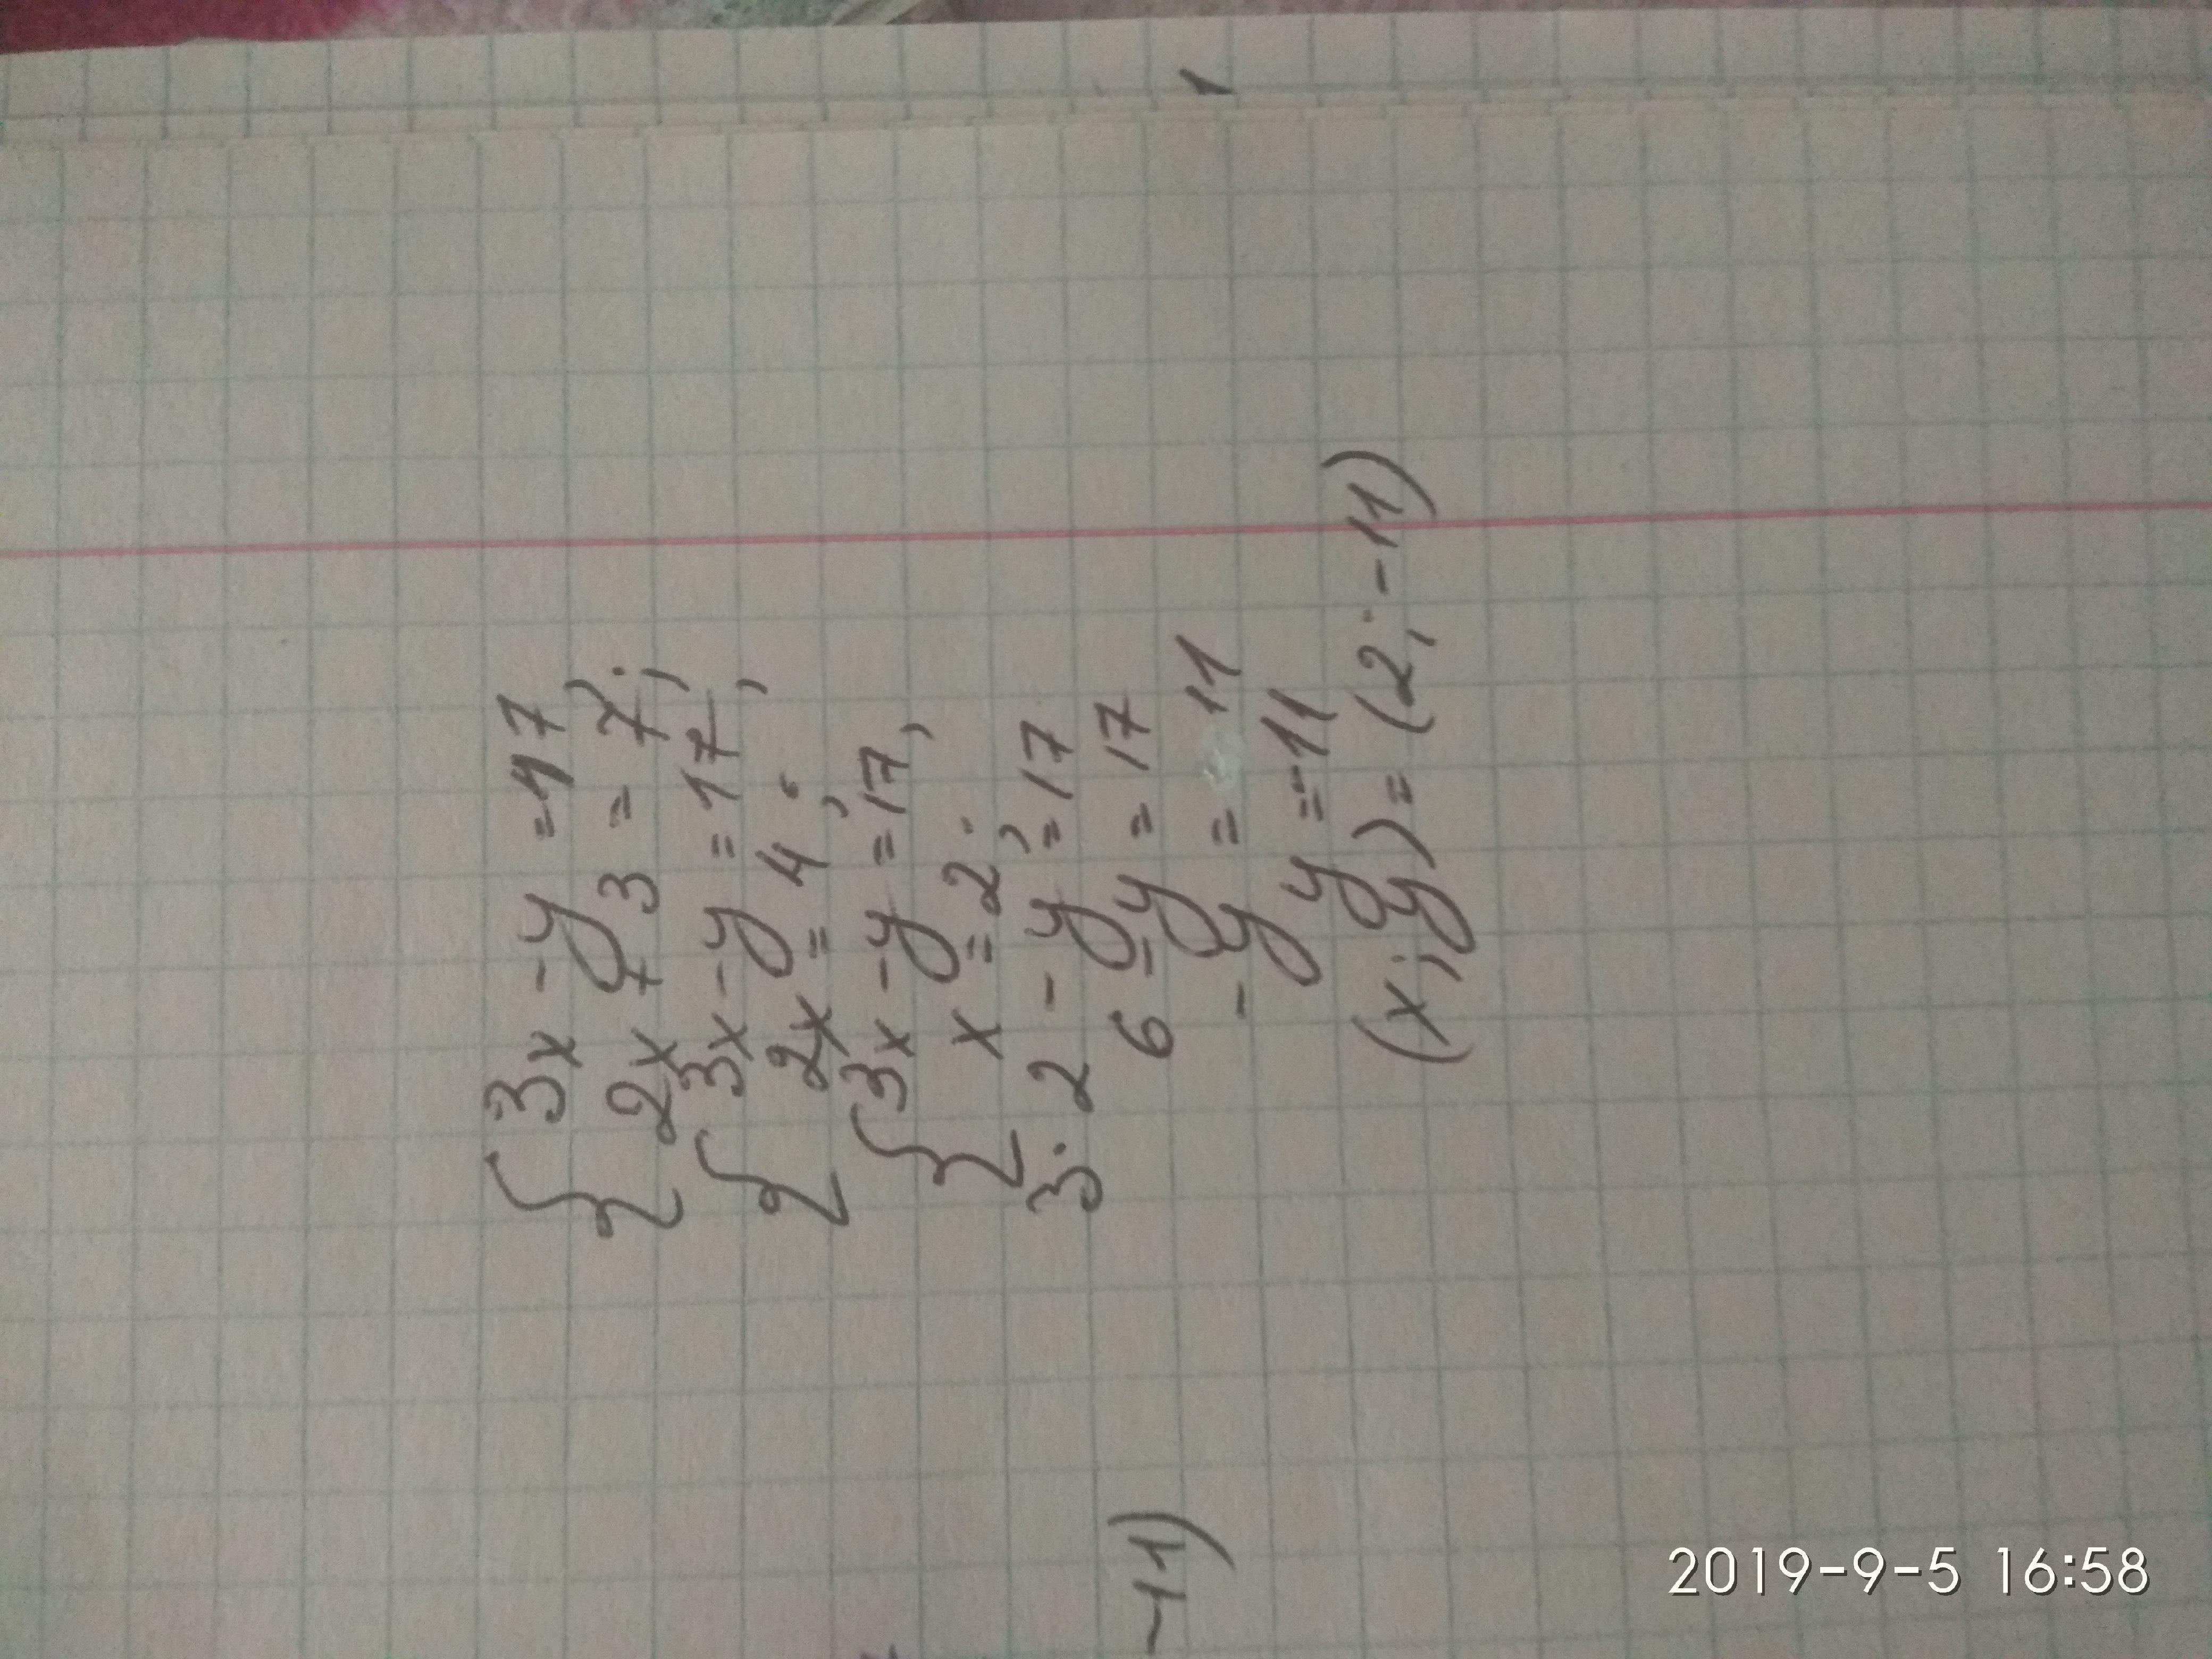 { 3x - y = 17,
2x + 3 = 7;
{ 3x - y = 17,
2x = 4;
{ 3x - y = 17,
x = 2;
3 · 2 - y = 17
6 - y = 17
- y = 11
y = -11
(x; y) = (2; -11)
-11)
2019-9-5 16:58